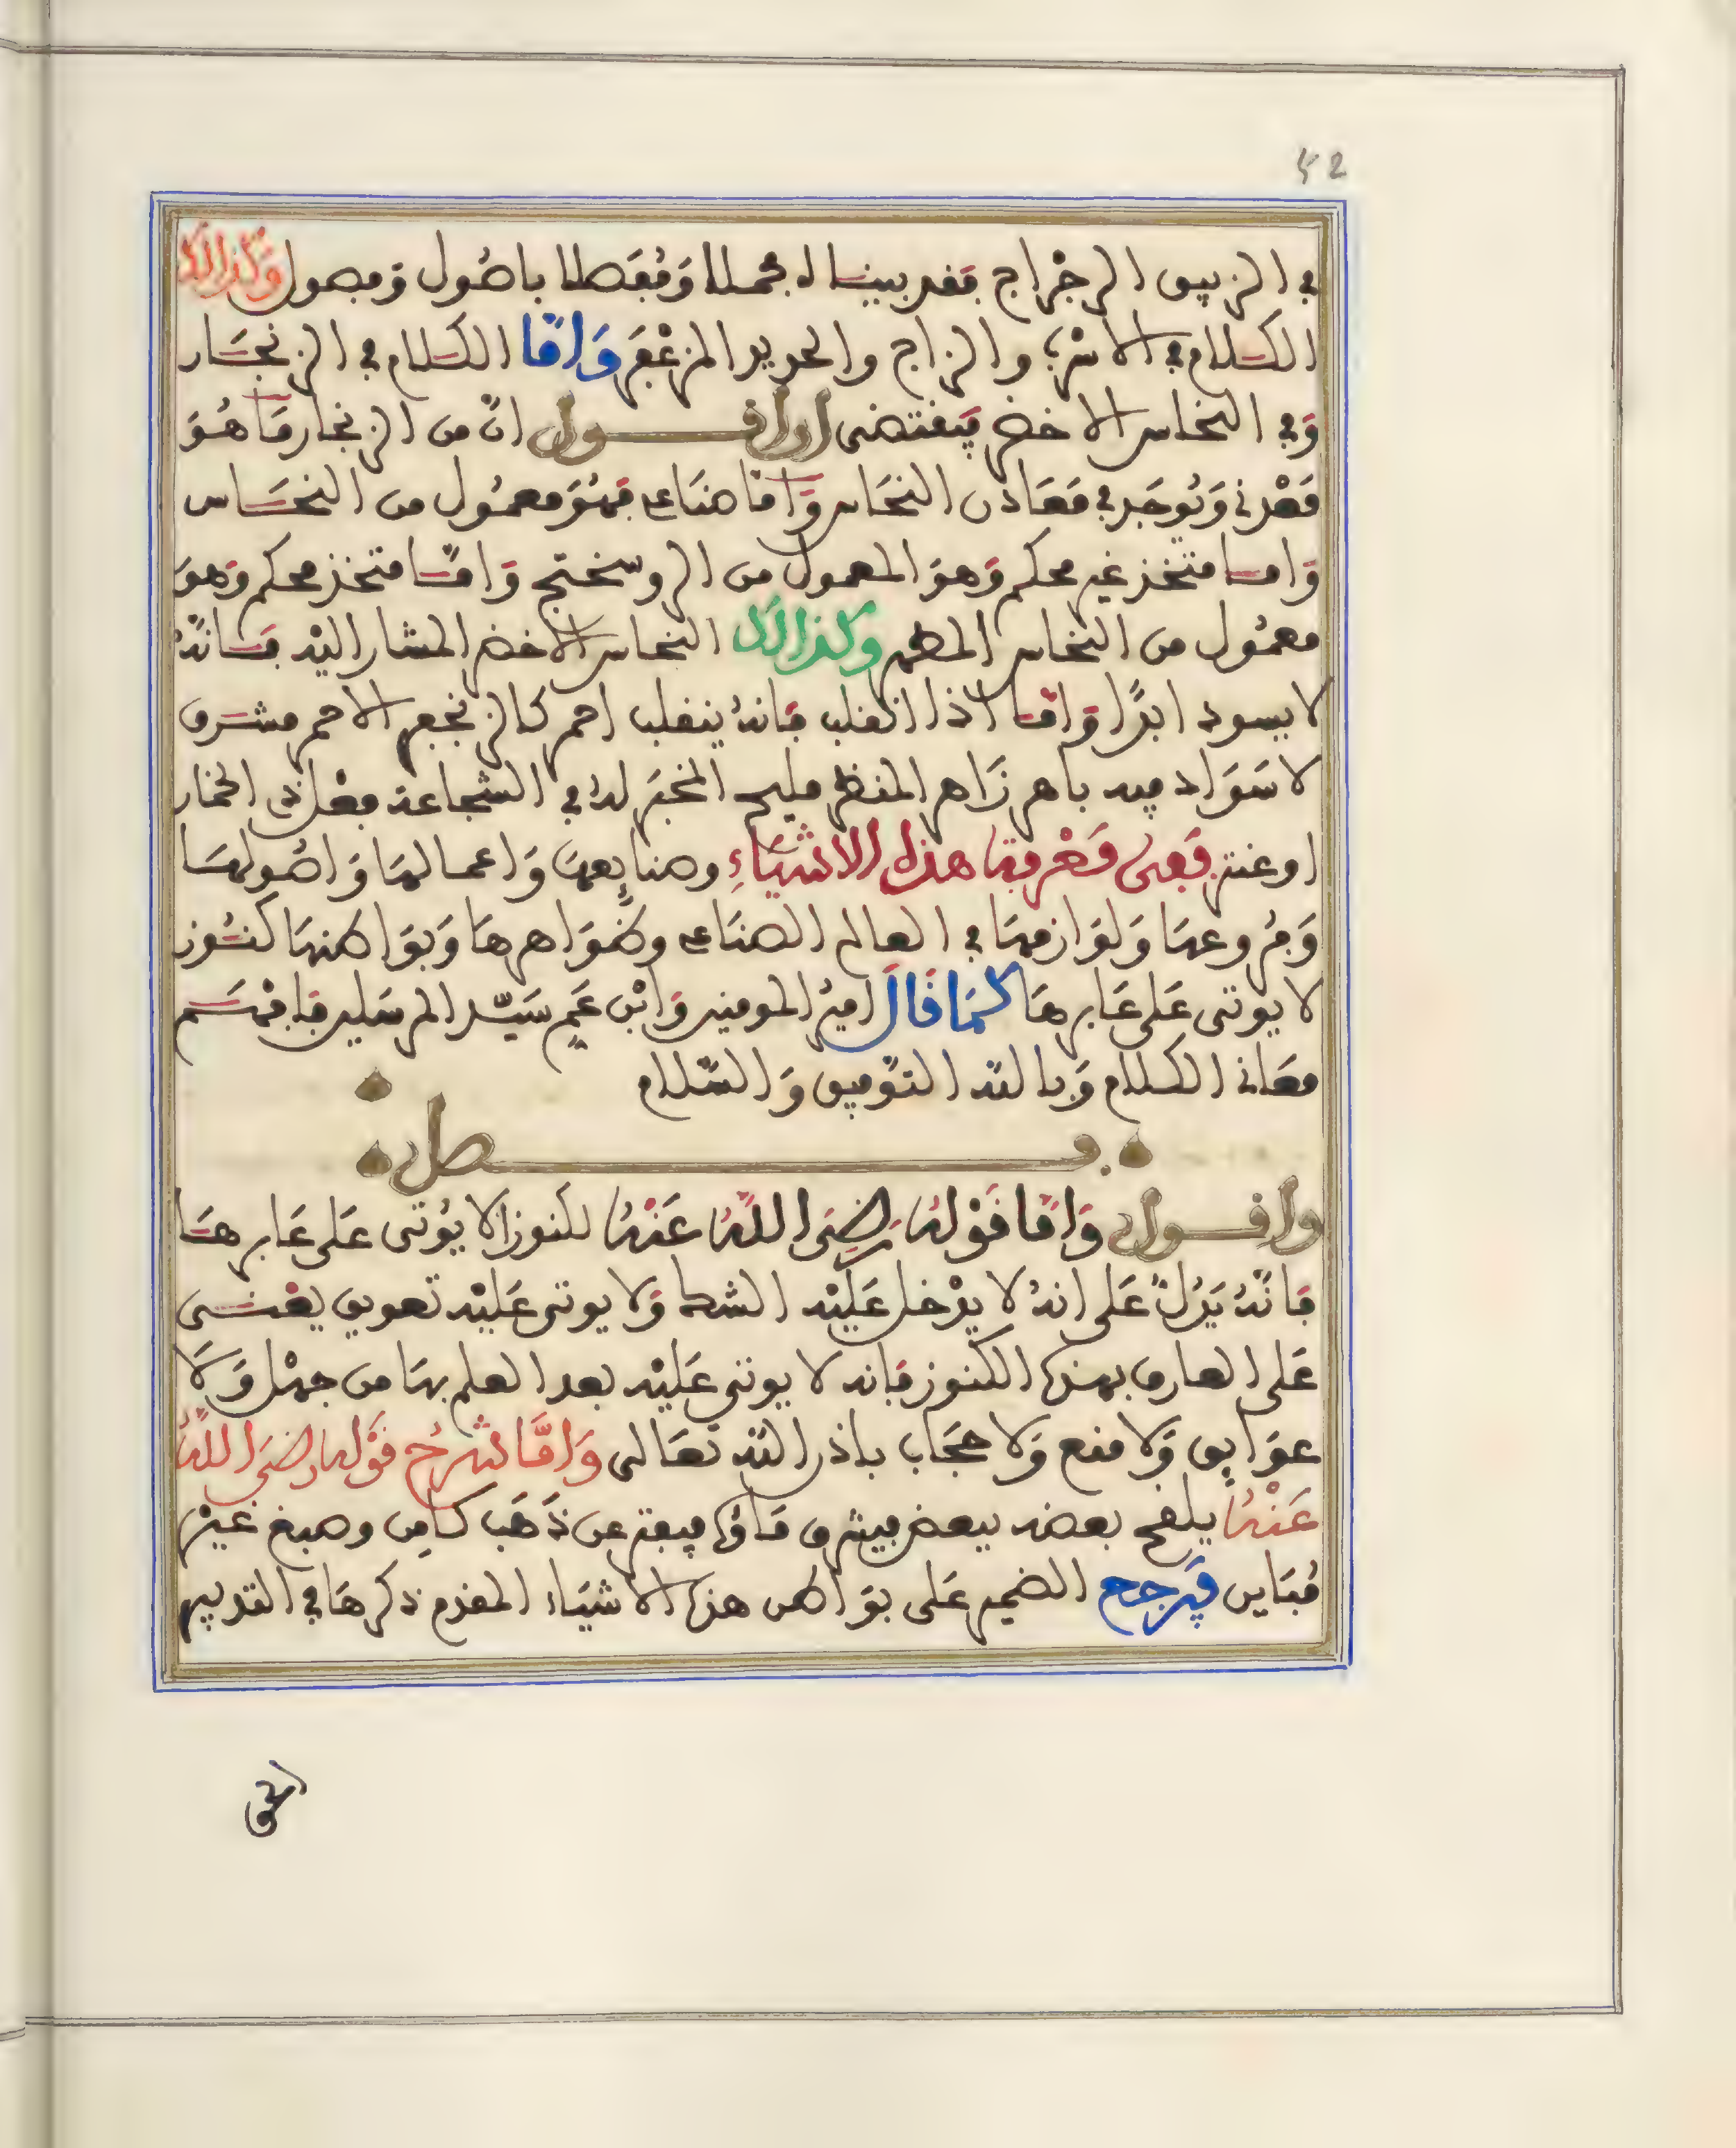 52
في الزيبق الرجراج فقد بيناه مجملا ومفصلا باصول وفصول وكذالك
الكلام في الاسرب والزاج والحديد المزعفر واما الكلام في الزنجار
وفي النحاس الاخضر فيقتضى ان اقول ان من الزنجار ما هو
معدني ويوجد في معادن النحاس واما صناعي فهو معمول من النحاس
واما متخذ غير محكم وهو المعمول من الروسختج واما متخذ محكم وهو
معمول من النحاس المطهر وكذالك النحاس الاخضر المشار اليه فانه
لا يسود ابدا واما اذا انقلب فانه ينقلب احمر كالزنجفر الاحمر مشرق
لا سواد فيه باهر زاهر المنظر مليح المخبر له في الشجاعة فعل ذي الخمار
او عنتر فعى معرفة هذه الاشياء وصنايعها واعمالها واصولها
وفروعها ولوازمها في العالم الصناعي وظواهرها وبواطنها كنوز
لا يوتى على عابرها كما قال امير المومنين وابن عم سيد المرسلين فافهم
معاني الكلام وبالله التوفيق والسلام
فصل
واقول واما قوله رضى الله عنه للكنوز الا يوتى على عابرها
فانه يدل على انه لا يدخل عليه الشك ولا يوتى عليه تعويق يعنى
على العارف بهذه الكنوز فانه لا يوتى عليه بعد العلم بها من جهل ولا
عوايق ولا منع ولا حجاب باذن الله تعالى واما شرح قوله رضى الله
عنه يلقح بعضه ببعض فيشرق ماؤه فيفتر عن ذهب كامن وصبغ غير
مباين فيرجع الضمير على بواطن هذه الاشياء المقدم ذكرها في التدبير
الحق